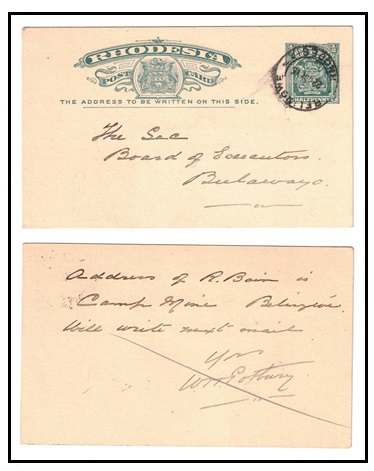 RHODESIA
POST CARD
THE ADDRESS TO BE WRITTEN ON THIS SIDE.
HALFPENNY
The Sec
Board of Executors.
Bulawayo.
Address of R. Bain is
Camp Mine Belingwe.
Will write next mail
Yrs